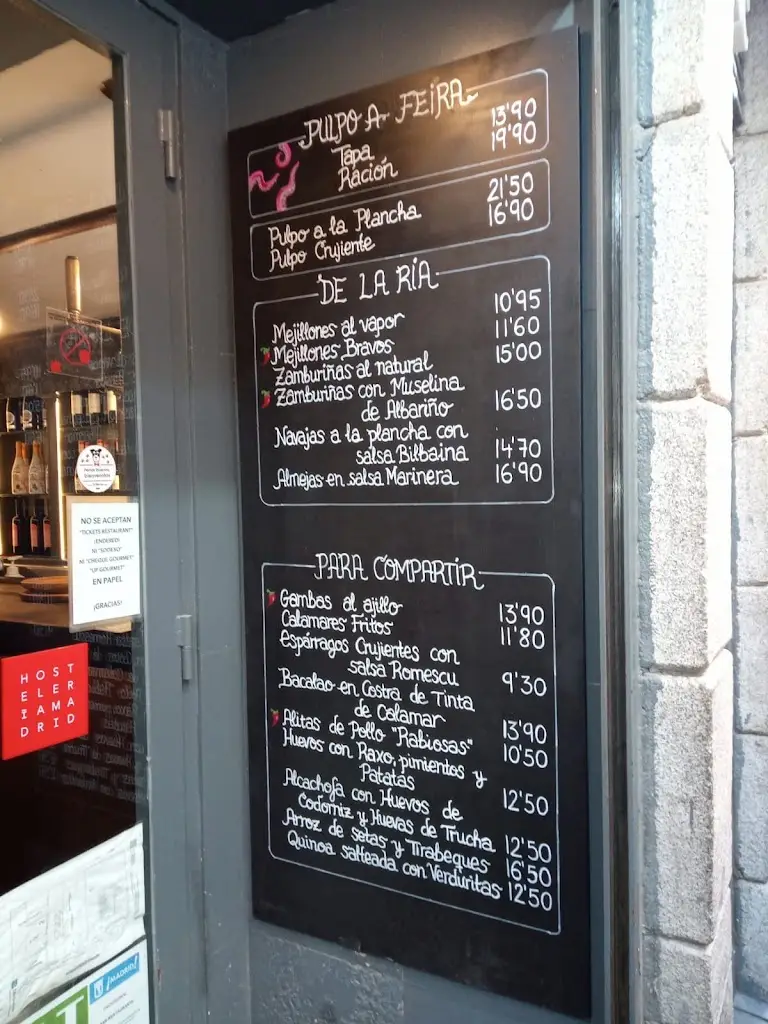 PULPO A FEIRA
Tapa 13'90
Ración 19'90
Pulpo a la Plancha 21'50
Pulpo Crujiente 16'90
DE LA RÍA
Mejillones al vapor 10'95
Mejillones Bravos 11'60
Zamburiñas al natural 15'00
Zamburiñas con Muselina
de Albariño 16'50
Navajas a la plancha con
salsa Bilbaina 14'70
Almejas en salsa Marinera 16'90
PARA COMPARTIR
Gambas al ajillo 13'90
Calamares Fritos 11'80
Espárragos Crujientes con
salsa Romescu 9'30
Bacalao en Costra de Tinta
de Calamar 13'90
Alitas de Pollo "Rabiosas" 10'50
Huevos con Raxo, pimientos y
Patatas 12'50
Alcachofa con Huevos de
Codorniz y Huevas de Trucha 12'50
Arroz de setas y Tirabeques 16'50
Quinoa salteada con Verduritas 12'50
NO SE ACEPTAN
"TICKETS RESTAURANT"
¡ENDERED!
NI "SODEXO"
NI "CHEQUE GOURMET"
"UP GOURMET"
EN PAPEL
¡GRACIAS!
HOST
ELER
ÍAMA
DRID
¡MADRID!